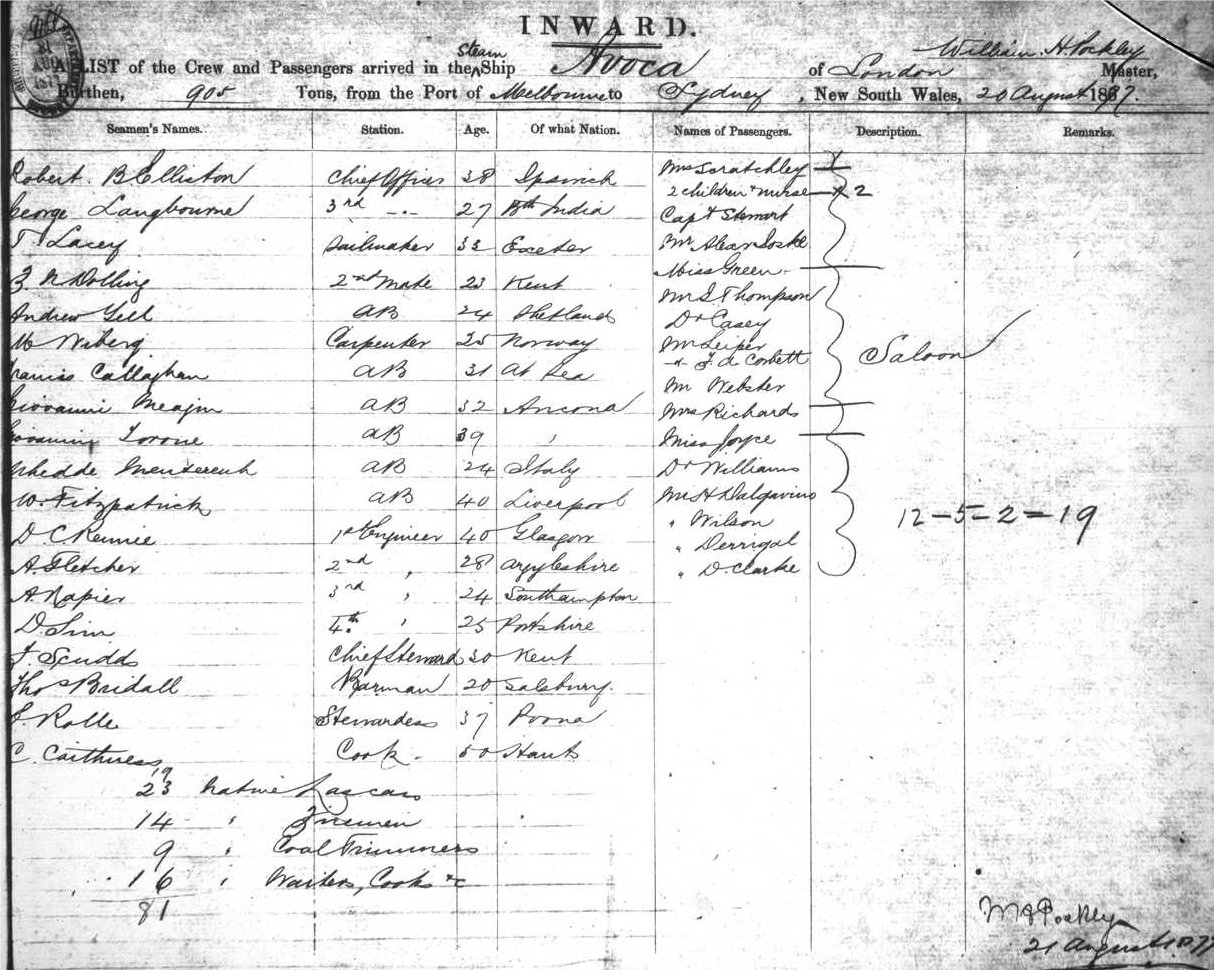 INWARD.
A LIST of the Crew and Passengers arrived in the Steam Ship Avoca of London William H Pockley Master,
Burthen, 905 Tons, from the Port of Melbourne to Sydney, New South Wales, 20 August 1877.
Seamen's Names. Station. Age. Of what Nation. Names of Passengers. Description. Remarks.
Robert B Elliston Chief Officer 38 Ipswich Mrs Scratchley
2 children & nurse 2
George Langbourne 3rd -.- 27 Bth India Capt Stewart
T Lacey Sailmaker 33 Exeter Mr
Miss Green
Dolling 2nd Mate 23 Kent
Mr Thompson
Andrew Gill AB 24 Shetlands
Dr Casey
M Wiberg Carpenter 35 Norway Mr Leiper
F. A Corbett Saloon
Francis Callaghan AB 31 At Sea
Mr Webster
Giovanni AB 32 Ancona Mrs Richards
Giovanni Torone AB 39 " Miss Joyce
AB 24 Italy Dr Williams
W. Fitzpatrick AB 40 Liverpool Mr H Dalgavino
12-5-2=19
" Wilson
D. C Rennie 1st Engineer 40 Glasgow
" Derrigal
A. Fletcher 2nd " 28 Argyleshire " D. Clarke
A. Napier 3rd " 24 Southampton
D. Sim 4th " 25
J Scudds Chief Steward 30 Kent
Thos Bridall Barman 20 Salsbury.
E. Rolle Stewardess 37 Poona
C. Caithness Cook 50 Hants
19
23 Native Lascars
14 " Firemen
9 " Coal Trimmers
16 " Waiters, Cooks &c
81
W H Pockley
21 August 1877